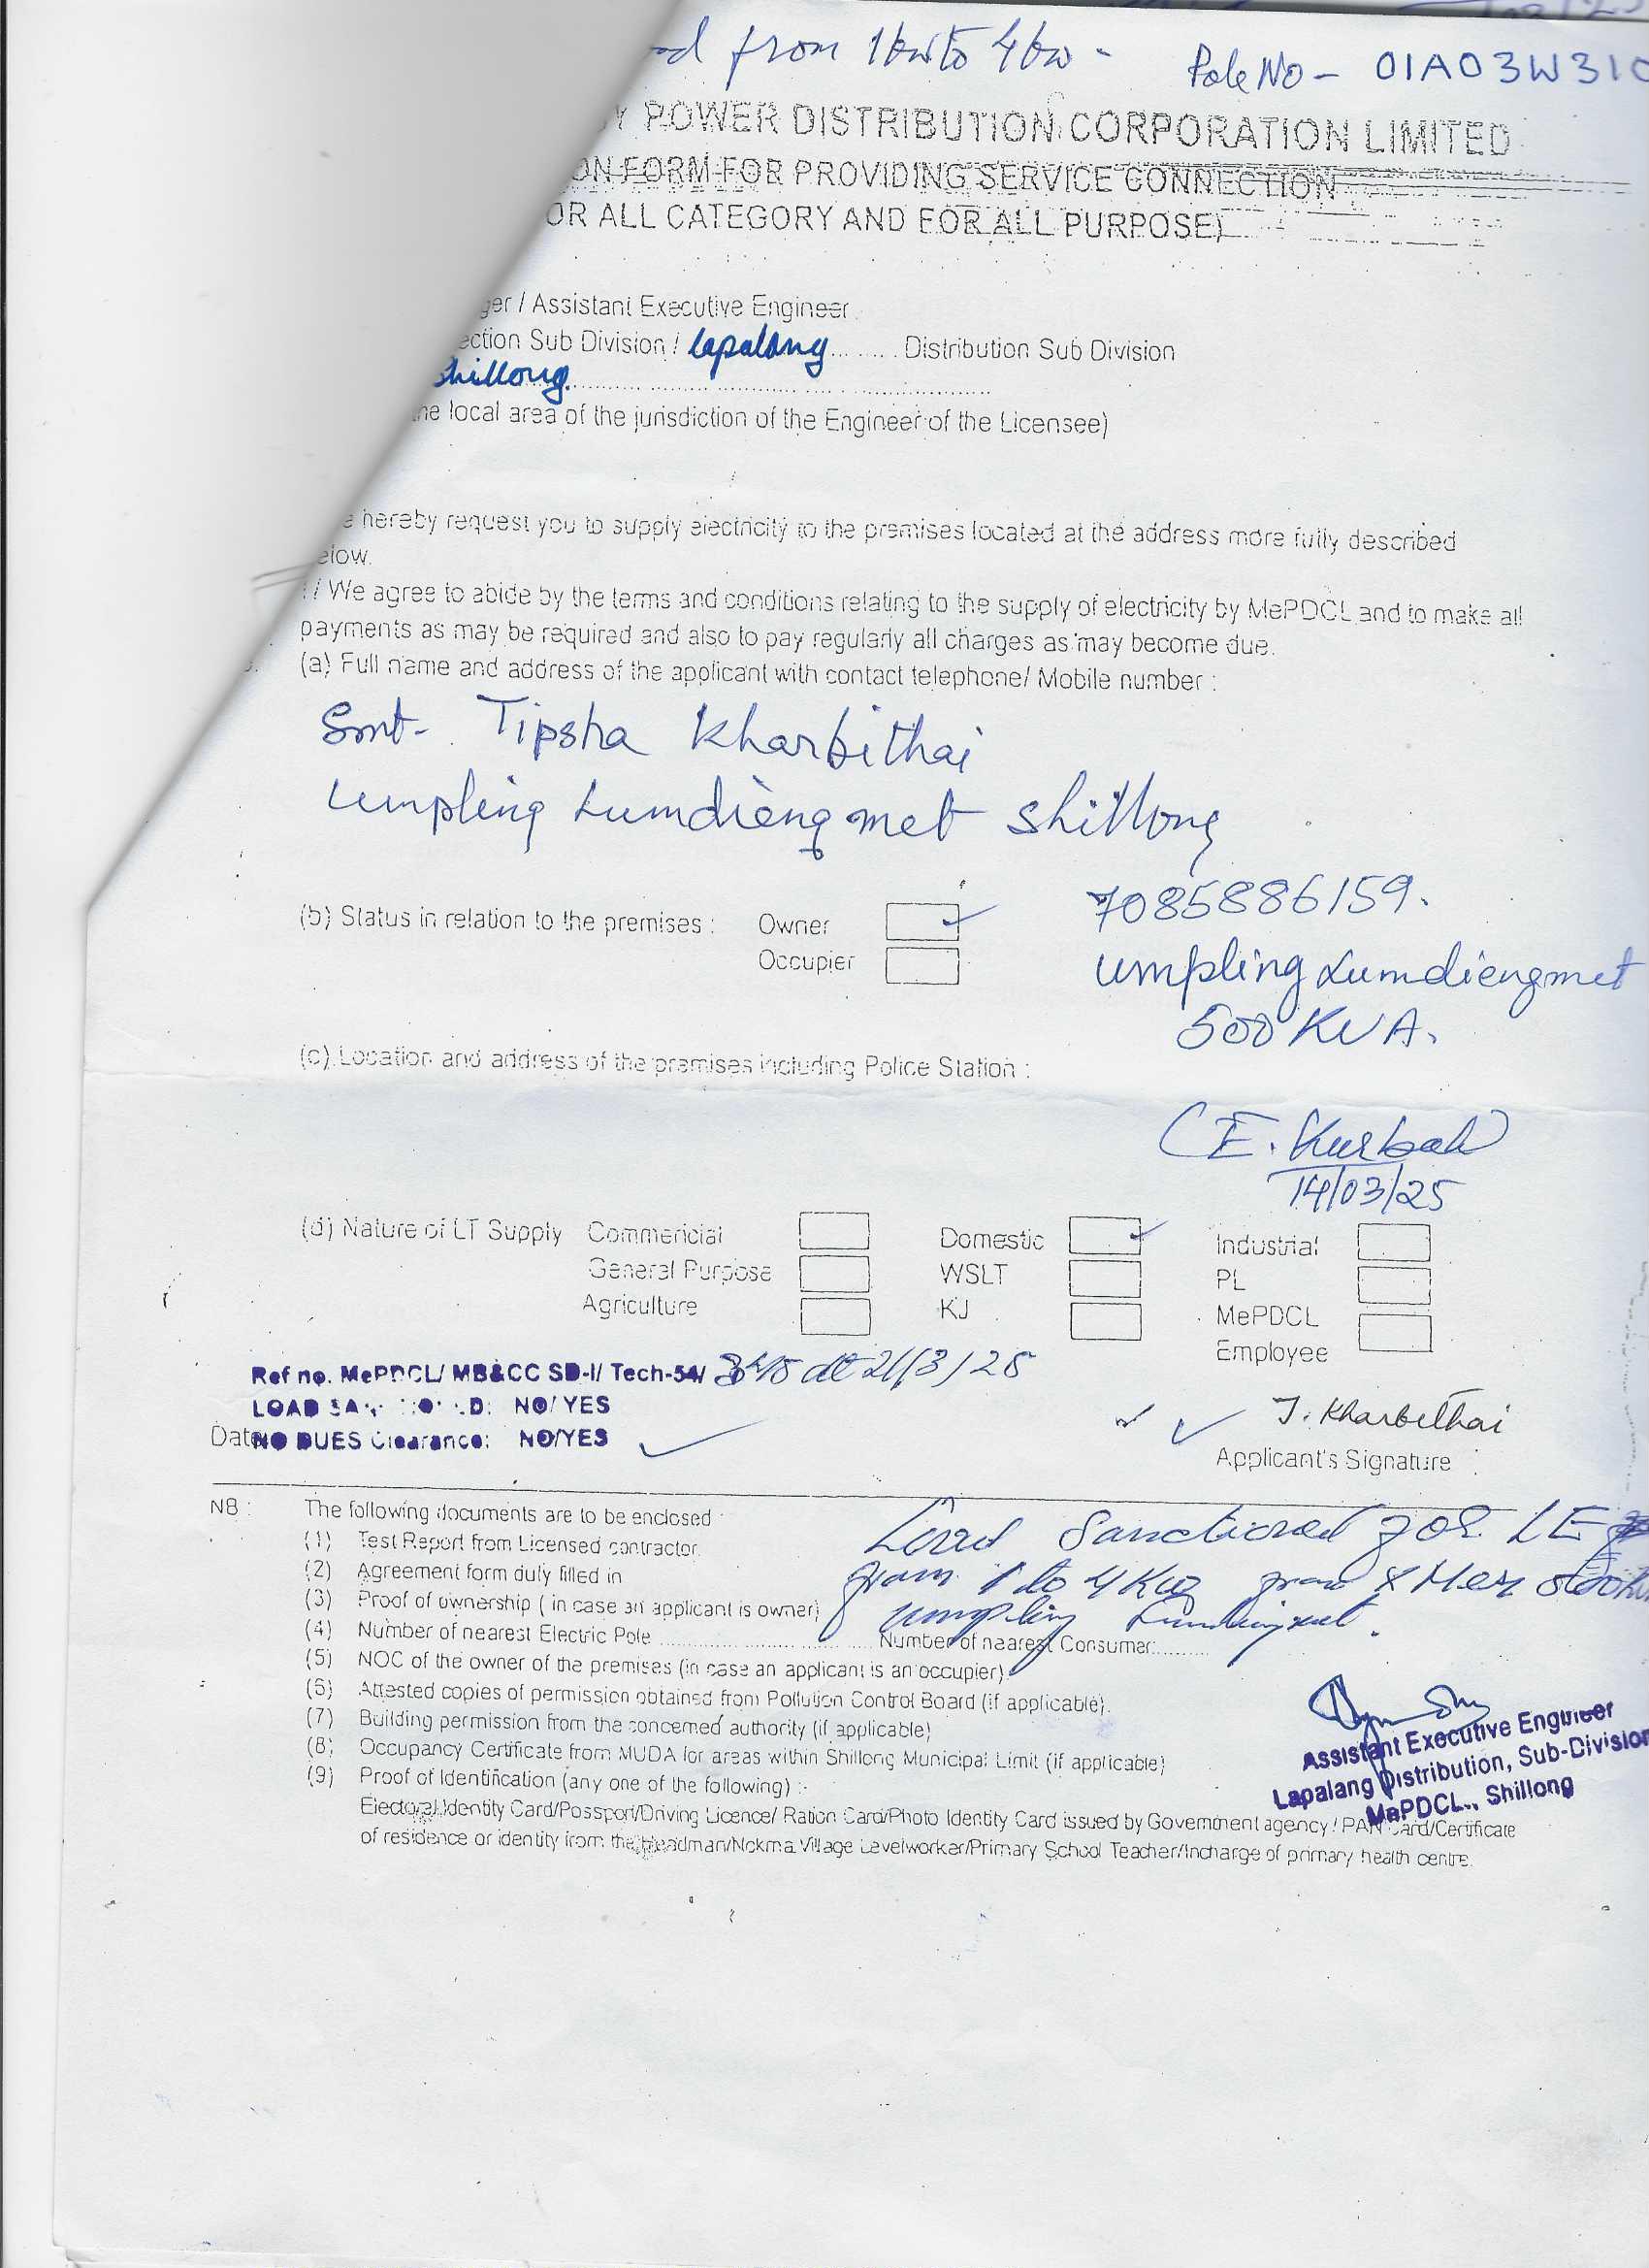 from 1kw to 4kw - Pole No - 01A03W310
POWER DISTRIBUTION CORPORATION LIMITED
ON FORM FOR PROVIDING SERVICE CONNECTION
OR ALL CATEGORY AND FOR ALL PURPOSE)
ger / Assistant Executive Engineer
ection Sub Division / Lapalang ........ Distribution Sub Division
Shillong
he local area of the jurisdiction of the Engineer of the Licensee)
e hereby request you to supply electricity to the premises located at the address more fully described
elow.
I / We agree to abide by the terms and conditions relating to the supply of electricity by MePDCL and to make all
payments as may be required and also to pay regularly all charges as may become due.
(a) Full name and address of the applicant with contact telephone/ Mobile number :
Smt- Tipsha Kharbithai
Umpling Lumdiengmet Shillong
(b) Status in relation to the premises : Owner
Occupier
7085886159.
Umpling Lumdiengmet
500 KVA.
(c) Location and address of the premises including Police Station :
(E. Kurbah)
14/03/25
(d) Nature of LT Supply Commericial Domestic Industrial
General Purpose WSLT PL
Agriculture KJ MePDCL
Employee
Ref no. MePDCL/ MB&CC SD-I/ Tech-54/ dt 21/3/25
LOAD NO/ YES
Date NO DUES Clearance: NO/YES
T. Kharbithai
Applicant's Signature
NB : The following documents are to be enclosed
(1) Test Report from Licensed contractor.
(2) Agreement form duly filled in
(3) Proof of ownership ( in case an applicant is owner)
(4) Number of nearest Electric Pole .................... Number of nearest Consumer:..........
(5) NOC of the owner of the premises (in case an applicant is an occupier)
(6) Attested copies of permission obtained from Pollution Control Board (if applicable).
(7) Building permission from the concerned authority (if applicable)
(8) Occupancy Certificate from MUDA for areas within Shillong Municipal Limit (if applicable)
(9) Proof of Identification (any one of the following) :-
Electoral Identity Card/Possport/Driving Licence/ Ration Card/Photo Identity Card issued by Government agency / PAN Card/Certificate
of residence or identity from the Headman/Nokma Village Levelworker/Primary School Teacher/Incharge of primary health centre.
Load Sanctioned for LE
from 1 to 4 KW from
Umpling Lumdiengmet.
Assistant Executive Engineer
Lapalang Distribution, Sub-Division
MePDCL., Shillong